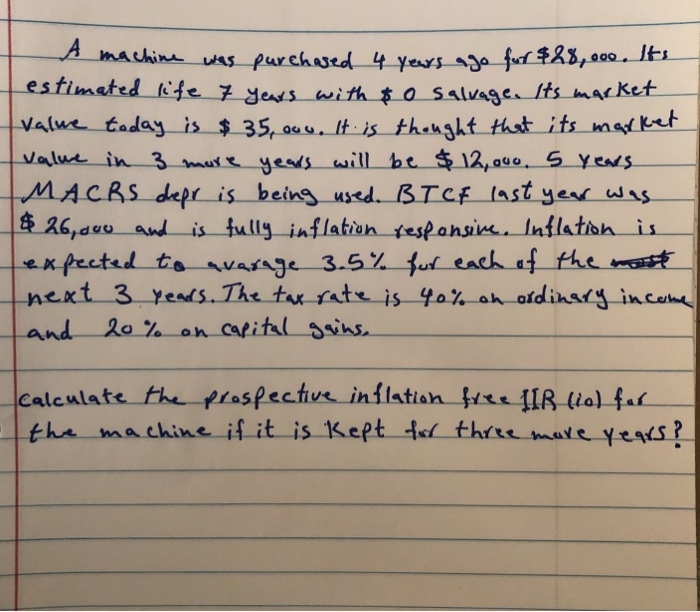 A machine was purchased 4 years ago for $28,000. Its
estimated life 7 years with $0 salvage. Its market
value today is $35,000. It is thought that its market
value in 3 more years will be $12,000. 5 years
MACRS depr is being used. BTCF last year was
$26,000 and is fully inflation responsive. Inflation is
expected to avarage 3.5% for each of the
next 3 years. The tax rate is 40% on ordinary income
and 20% on capital gains.
Calculate the prospective inflation free IIR (io) for
the machine if it is kept for three more years?